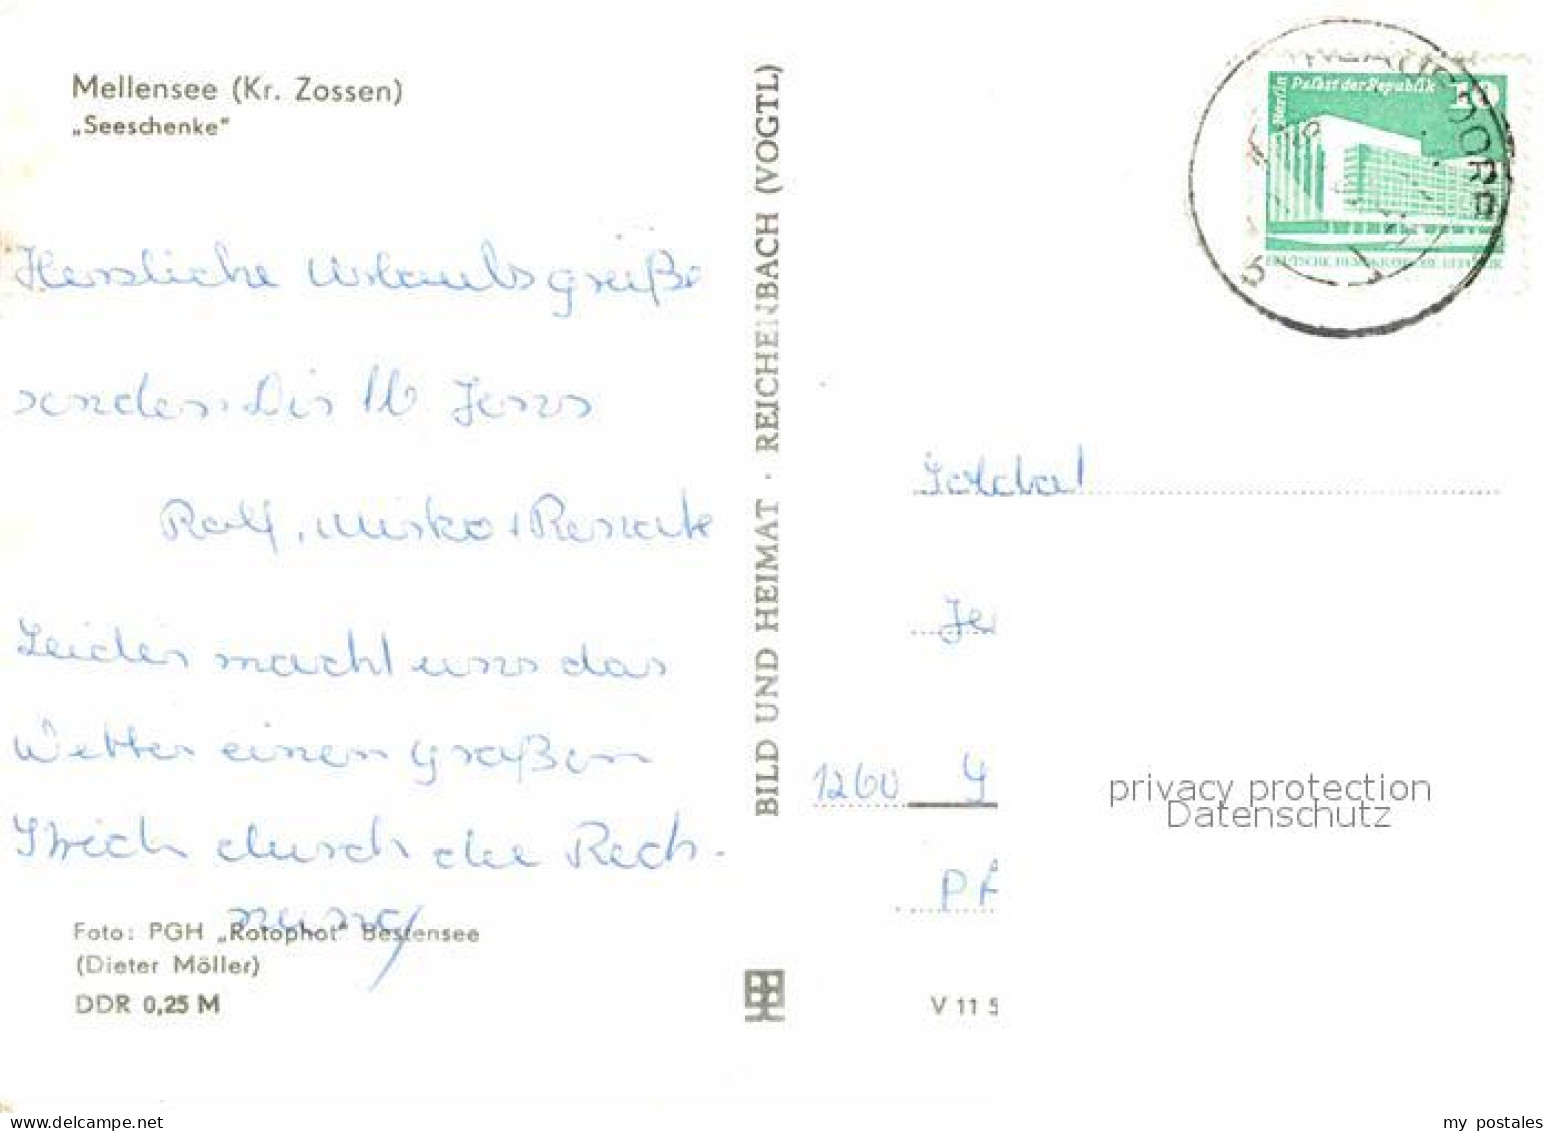 Mellensee (Kr. Zossen)
„Seeschenke“
Herzliche Urlaubsgrüße
senden Dir lb. Jens
Ralf, Mirko + Renate
Leider macht uns das
Wetter einen großen
Strich durch die Rech-
nung
Foto: PGH „Rotophot“ Bestensee
(Dieter Möller)
DDR 0,25 M
BILD UND HEIMAT · REICHENBACH (VOGTL)
Berlin
Palast der Republik
10
DEUTSCHE DEMOKRATISCHE REPUBLIK
Soldat
Je
1260
V 11 5
privacy protection
Datenschutz
www.delcampe.net
my postales